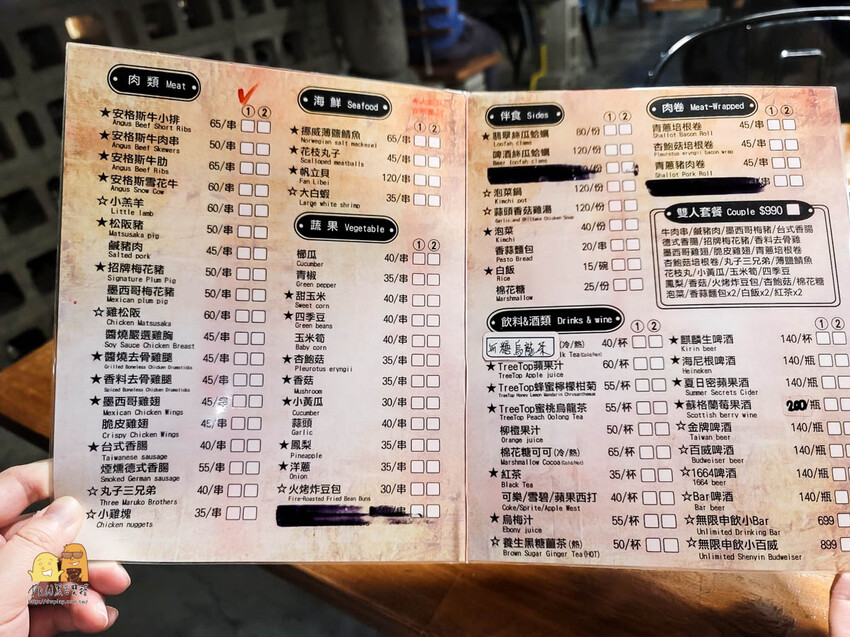 肉類 Meat
① ②
★安格斯牛小排 65/串
Angus Beef Short Ribs
★安格斯牛肉串 50/串
Angus Beef Skewers
★安格斯牛肋 65/串
Angus Beef Ribs
★安格斯雪花牛 60/串
Angus Snow Cow
☆小羔羊 60/串
Little lamb
★松阪豬 50/串
Matsusaka pig
鹹豬肉 45/串
Salted pork
★招牌梅花豬 50/串
Signature Plum Pig
墨西哥梅花豬 50/串
Mexican plum pig
☆雞松阪 60/串
Chicken Matsusaka
醬燒嚴選雞胸 45/串
Soy Sauce Chicken Breast
★醬燒去骨雞腿 45/串
Grilled Boneless Chicken Drumsticks
★香料去骨雞腿 45/串
Spiced Boneless Chicken Drumsticks
★墨西哥雞翅 45/串
Mexican Chicken Wings
脆皮雞翅 45/串
Crispy Chicken Wings
★台式香腸 40/串
Taiwanese sausage
煙燻德式香腸 55/串
Smoked German sausage
☆丸子三兄弟 40/串
Three Maruko Brothers
☆小雞塊 35/串
Chicken nuggets
海鮮 Seafood
① ②
★挪威薄鹽鯖魚 65/串
Norwegian salt mackerel
★花枝丸子 45/串
Scalloped meatballs
★帆立貝 120/串
Fan Libei
☆大白蝦 35/串
Large white shrimp
蔬果 Vegetable
① ②
櫛瓜 40/串
Cucumber
青椒 35/串
Green pepper
★甜玉米 35/串
Sweet corn
★四季豆 40/串
Green beans
玉米筍 40/串
Baby corn
★杏鮑菇 35/串
Pleurotus eryngii
★香菇 35/串
Mushroom
★小黃瓜 30/串
Cucumber
蒜頭 40/串
Garlic
★鳳梨 35/串
Pineapple
★洋蔥 35/串
Onion
☆火烤炸豆包 30/串
Fire-Roasted Fried Bean Buns
伴食 Sides
① ②
★翡翠絲瓜蛤蠣 80/份
Loofah clams
啤酒絲瓜蛤蠣 120/份
Beer loofah clams
☆泡菜鍋 120/份
Kimchi pot
☆蒜頭香菇雞湯 120/份
Garlic and Shiitake Chicken Soup
★泡菜 40/份
Kimchi
香蒜麵包 20/串
Pesto Bread
★白飯 15/碗
Rice
棉花糖 25/份
Marshmallow
肉卷 Meat-Wrapped
① ②
青蔥培根卷 45/串
Shallot Bacon Roll
杏鮑菇培根卷 45/串
Pleurotus eryngii Bacon wrap
青蔥豬肉卷 45/串
Shallot Pork Roll
雙人套餐 Couple $990
牛肉串/鹹豬肉/墨西哥梅豬/台式香腸
德式香腸/招牌梅花豬/香料去骨雞
墨西哥雞翅/脆皮雞翅/青蔥培根卷
杏鮑菇培根卷/丸子三兄弟/薄鹽鯖魚
花枝丸/小黃瓜/玉米筍/四季豆
鳳梨/香菇/火烤炸豆包/杏鮑菇/棉花糖
泡菜/香蒜麵包x2/白飯x2/紅茶x2
飲料&酒類 Drinks & wine
① ②
(冷/熱) 40/杯
★TreeTop蘋果汁 60/杯
TreeTop Apple juice
★TreeTop蜂蜜檸檬柑菊 55/杯
TreeTop Honey Lemon Mandarin Chrysanthemum
★TreeTop蜜桃烏龍茶 55/杯
TreeTop Peach Oolong Tea
柳橙果汁 50/杯
Orange juice
棉花糖可可(冷/熱) 65/杯
Marshmallow Cocoa(Cold/Hot)
★紅茶 35/杯
Black Tea
可樂/雪碧/蘋果西打 40/杯
Coke/Sprite/Apple West
★烏梅汁 55/杯
Ebony juice
☆養生黑糖薑茶(熱) 50/杯
Brown Sugar Ginger Tea(HOT)
① ②
★麒麟生啤酒 140/杯
Kirin beer
★海尼根啤酒 140/瓶
Heineken
★夏日密蘋果酒 140/瓶
Summer Secrets Cider
★蘇格蘭莓果酒 200/瓶
Scottish berry wine
☆金牌啤酒 140/瓶
Taiwan beer
☆百威啤酒 140/瓶
Budweiser beer
☆1664啤酒 140/瓶
1664 beer
☆Bar啤酒 140/瓶
Bar beer
☆無限申飲小Bar 699
Unlimited Drinking Bar
☆無限申飲小百威 899
Unlimited Shenyin Budweiser